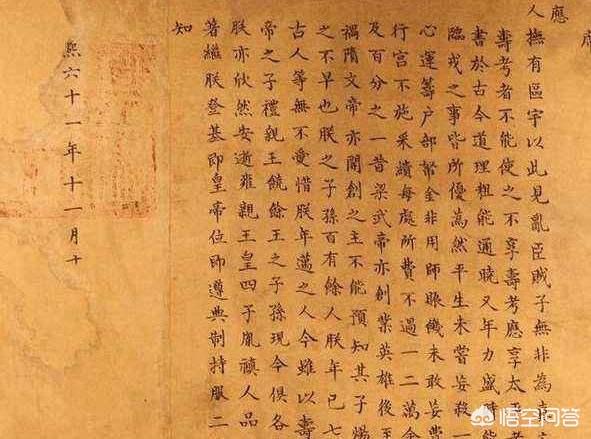 席
應
人撫有區宇以此見亂臣賊子無非為
壽考者不能使之不享壽考應享太
書於古今道理粗能通曉又年力盛時能
臨戎之事皆所優為然平生未嘗妄殺一
心運籌戶部帑金非用師賑饑未敢妄費
行宮不施采繢每處所費不過一二萬金
及百分之一昔梁武帝亦創業英雄後至
禍隋文帝亦開創之主不能預知其子煬
之不早也朕之子孫百有餘人朕年已七
古人等無不愛惜朕年邁之人今雖以壽
帝之子禮親王饒餘王之子孫現今俱各
朕亦欣然安逝雍親王皇四子胤禛人品
著繼朕登基即皇帝位即遵典制持服二
知
熙六十一年十一月十
悟空问答